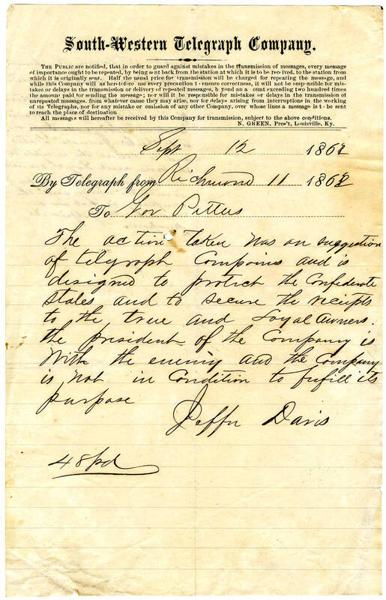 South-Western Telegraph Company.
The Public are notified, that in order to guard against mistakes in the transmission of messages, every message
of importance ought to be repeated, by being sent back from the station at which it is to be received, to the station from
which it is originally sent. Half the usual price for transmission will be charged for repeating the message, and
while this Company will as heretofore use every precaution to ensure correctness, it will not be responsible for mis-
takes or delays in the transmission or delivery of repeated messages, beyond an amount exceeding two hundred times
the amount paid for sending the message; nor will it be responsible for mistakes or delays in the transmission of
unrepeated messages, from whatever cause they may arise, nor for delays arising from interruptions in the working
of its Telegraphs, nor for any mistake or omission of any other Company, over whose lines a message is to be sent
to reach the place of destination
All messages will hereafter be received by this Company for transmission, subject to the above conditions.
N. GREEN, Pres't, Louisville, Ky.
Sept 12 1861
By Telegraph from Richmond 11 1861
To Gov Pettus
The action taken was on suggestion
of telegraph Companies and is
designed to protect the Confederate
States and to secure the receipts
to the true and Loyal owners.
the president of the Company is
with the enemy and the Company
is not in Condition to fulfill its
purpose
Jeffn Davis
48 pd